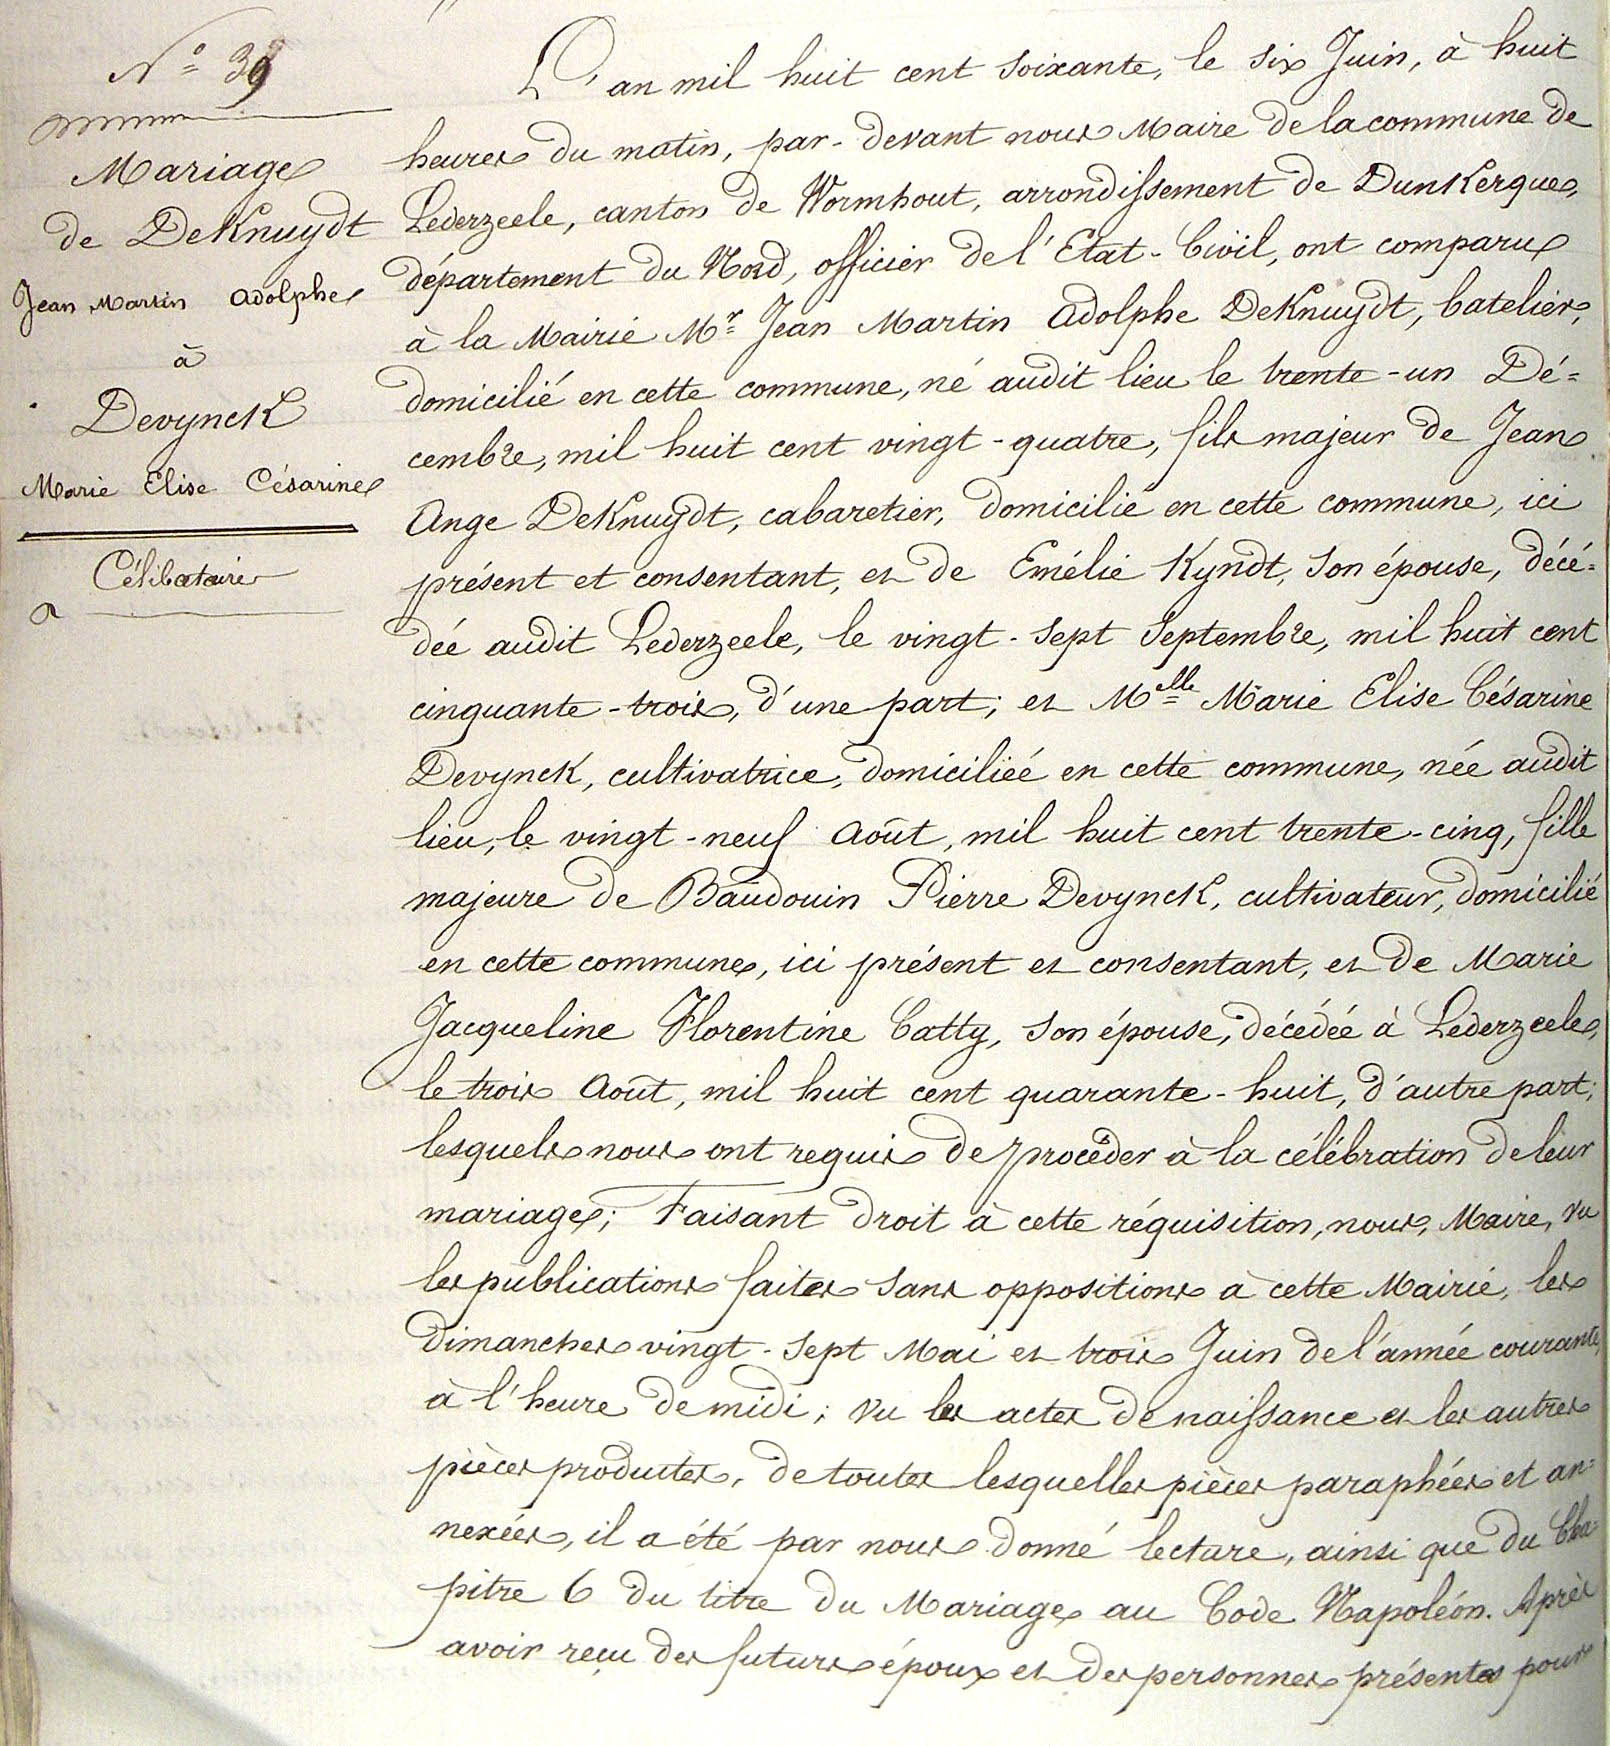 N° 39
Mariage
de DeKnuydt
Jean Martin Adolphe
à
Devynck
Marie Elise Césarine
Célibataire
a
L'an mil huit cent soixante, le six Juin, à huit
heures du matin, par-devant nous Maire de la commune de
Lederzeele, canton de Wormhout, arrondissement de Dunkerque,
département du Nord, officier de l'Etat-Civil, ont comparu
à la Mairie Mr Jean Martin Adolphe DeKnuydt, batelier,
domicilié en cette commune, né audit lieu le trente-un Dé=
cembre, mil huit cent vingt-quatre, fils majeur de Jean
Ange DeKnuydt, cabaretier, domicilié en cette commune, ici
présent et consentant, et de Emélie Kyndt, son épouse, décé=
dée audit Lederzeele, le vingt-sept Septembre, mil huit cent
cinquante-trois, d'une part; et Melle Marie Elise Césarine
Devynck, cultivatrice, domiciliée en cette commune, née audit
lieu, le vingt-neuf Août, mil huit cent trente-cinq, fille
majeure de Baudouin Pierre Devynck, cultivateur, domicilié
en cette commune, ici présent et consentant, et de Marie
Jacqueline Florentine Catty, son épouse, décédée à Lederzeele,
le trois Août, mil huit cent quarante-huit, d'autre part;
lesquels nous ont requis de procéder à la célébration de leur
mariage; Faisant droit à cette réquisition, nous, Maire, vu
les publications faites sans oppositions à cette Mairie, les
dimanches vingt-sept Mai et trois Juin de l'année courante,
à l'heure de midi; vu les actes de naissance et les autres
pièces produites, de toutes lesquelles pièces paraphées et an=
nexées, il a été par nous donné lecture, ainsi que du Cha=
pitre 6 du titre du Mariage au Code Napoléon. Après
avoir reçu des futurs époux et des personnes présentes pour